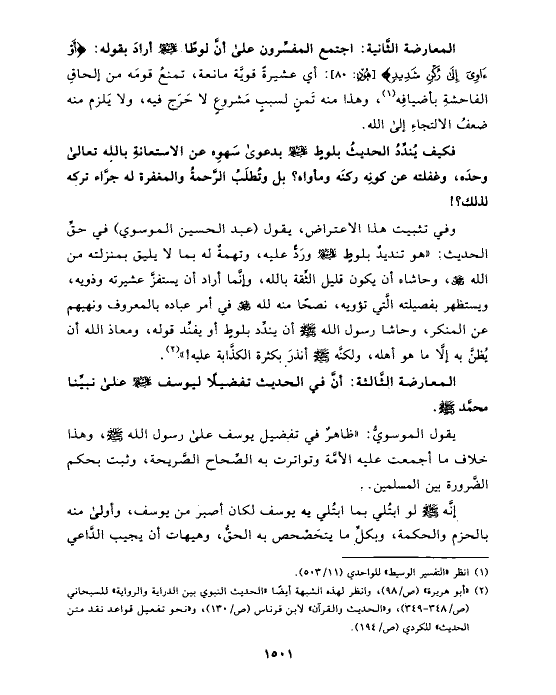 المعارضة الثَّانية: اجتمع المفسِّرون علىٰ أنَّ لوطًا ﷺ أرادَ بقوله: ﴿أَوْ
ءَاوِىٓ إِلَىٰ رُكْنٍ شَدِيدٍ﴾ [هُود: ٨٠]: أي عشيرةً قويَّة مانعة، تمنعُ قومَه من إلحاقِ
الفاحشةِ بأضيافِه(١)، وهذا منه تَمنٍ لسببٍ مَشروعٍ لا حَرَج فيه، ولا يَلزم منه
ضعفُ الالتجاءِ إلىٰ الله.
فكيف يُندِّدُ الحديثُ بلوطٍ ﷺ بدعوىٰ سَهوِه عن الاستعانةِ بالله تعالىٰ
وحدَه، وغفلته عن كونِه ركنَه ومأواه؟ بل وتُطلَبُ الرَّحمةُ والمغفرة له جرَّاء تركِه
لذلك؟!
وفي تثبيت هذا الاعتراض، يقول (عبد الحسين الموسوي) في حقِّ
الحديث: «هو تنديدٌ بلوطٍ ﷺ ورَدٌّ عليه، وتهمةٌ له بما لا يليق بمنزلته من
الله ﷻ، وحاشاه أن يكون قليل الثِّقة بالله، وإنَّما أراد أن يستفزَّ عشيرته وذويه،
ويستظهر بفصيلته الَّتي تؤويه، نصحًا منه لله ﷻ في أمر عباده بالمعروف ونهيهم
عن المنكر، وحاشا رسول الله ﷺ أن يندِّد بلوطٍ أو يفنِّد قوله، ومعاذ الله أن
يُظنَّ به إلَّا ما هو أهله، ولكنَّه ﷺ أنذرَ بكثرة الكذَّابة عليه!»(٢).
المعارضة الثَّالثة: أنَّ في الحديث تفضيلًا ليوسف ﷺ علىٰ نبيِّنا
محمَّد ﷺ.
يقول الموسويُّ: «ظاهرٌ في تفضيل يوسف علىٰ رسول الله ﷺ، وهذا
خلاف ما أجمعت عليه الأمَّة وتواترت به الصِّحاح الصَّريحة، وثبت بحكم
الضَّرورة بين المسلمين..
إنَّه ﷺ لو ابتُلي بما ابتُلي به يوسف لكان أصبرَ من يوسف، وأولىٰ منه
بالحزم والحكمة، وبكلِّ ما يتحَصْحص به الحقُّ، وهيهات أن يجيب الدَّاعي
(١) انظر «التفسير الوسيط» للواحدي (١١/٥٠٣).
(٢) «أبو هريرة» (ص/٩٨)، وانظر لهذه الشبهة أيضًا «الحديث النبوي بين الدراية والرواية» للسبحاني
(ص/٣٤٨-٣٤٩)، و«الحديث والقرآن» لابن قرناس (ص/١٣٠)، و«نحو تفعيل قواعد نقد متن
الحديث» للكردي (ص/١٩٤).
١٥٠١